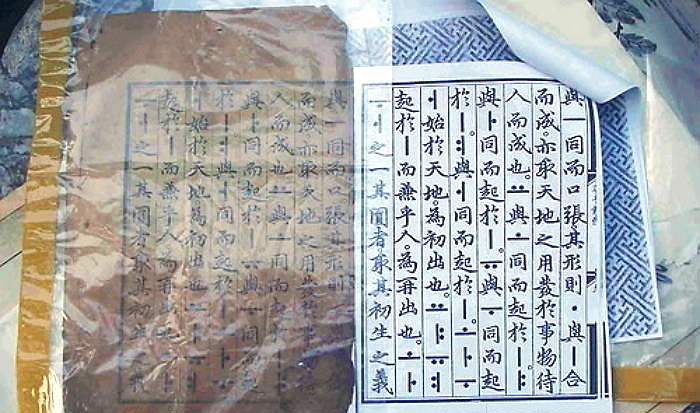 與ㅜ同而口張。其形則ㆍ與ㅣ合
而成。亦取天地之用發於事物待
人而成也。ㅛ與ㅗ同而起於ㅣ。ㅑ
與ㅏ同而起於ㅣ。ㅠ與ㅜ同而起
於ㅣ。ㅕ與ㅓ同而起於ㅣ。ㅗㅏㅜ
ㅓ始於天地。為初出也。ㅛㅑㅠㅕ
起於ㅣ而兼乎人。為再出也。ㅗㅏ
ㅜㅓ之一其圓者。取其初生之義
與ㅜ同而口張其形則
而成亦取天地之用發於事
人而成也ㅛ與ㅗ同而
與ㅏ同而起於ㅣㅠ與ㅜ同而起
於ㅣㅕ與ㅓ同而起於ㅣㅗㅏㅜ
ㅓ始於天地為初出也ㅛㅑㅠㅕ
起於ㅣ而兼乎人為再出也ㅗㅏ
ㅜㅓ之一其圓者取其初生之義